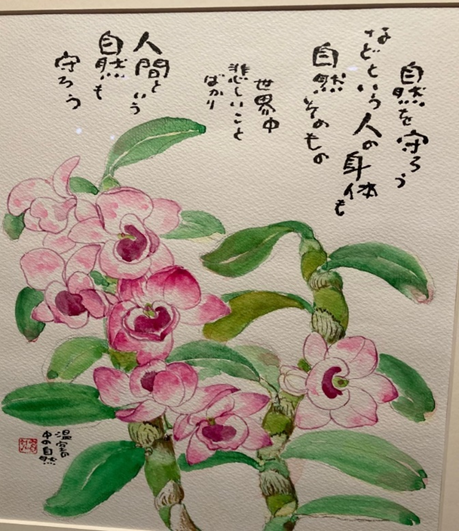 自然を守ろう
などという人の身体も
自然そのもの
世界中
悲しいこと
ばかり
人間という
自然も
守ろう
温室の
中の自然